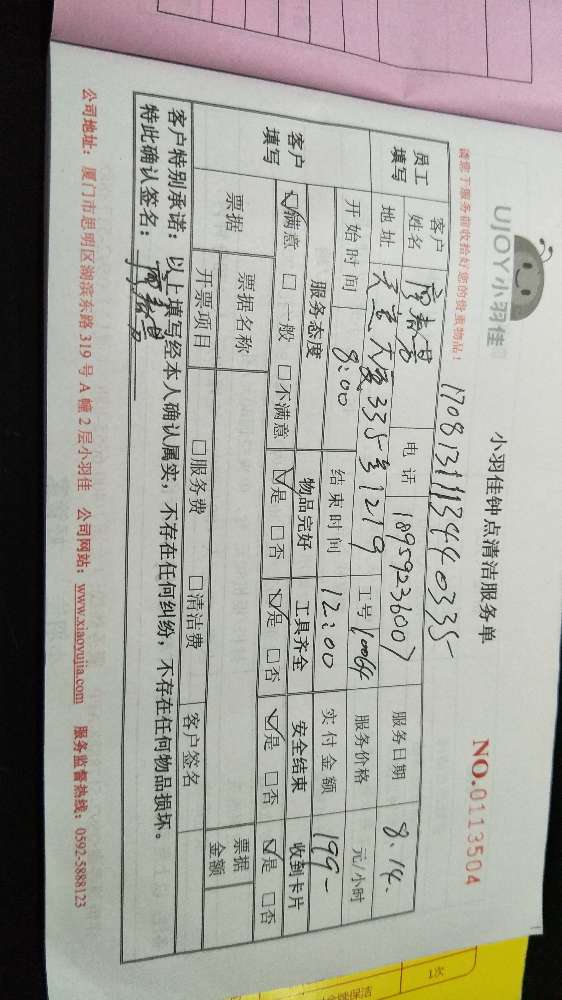 UJOY小羽佳
小羽佳钟点清洁服务单
NO.0113504
请您于服务前收拾好您的贵重物品！
170813111344 0335
员工填写
客户姓名
电话 18959236007
服务日期 8.14.
地址
335号1219
工号 10064
服务价格 元/小时
开始时间 8:00
结束时间 12:00
实付金额 199-
客户填写
服务态度 物品完好 工具齐全 安全结束 收到卡片
☑满意 □一般 □不满意 ☑是 □否 ☑是 □否 ☑是 □否 ☑是 □否
票据 票据名称 票据金额
开票项目 □服务费 □清洁费 客户签名
客户特别承诺：以上填写经本人确认属实，不存在任何纠纷，不存在任何物品损坏。
特此确认签名：
公司地址：厦门市思明区湖滨东路 319 号 A 幢 2 层小羽佳 公司网站：www.xiaoyujia.com 服务监督热线：0592-5888123
1次